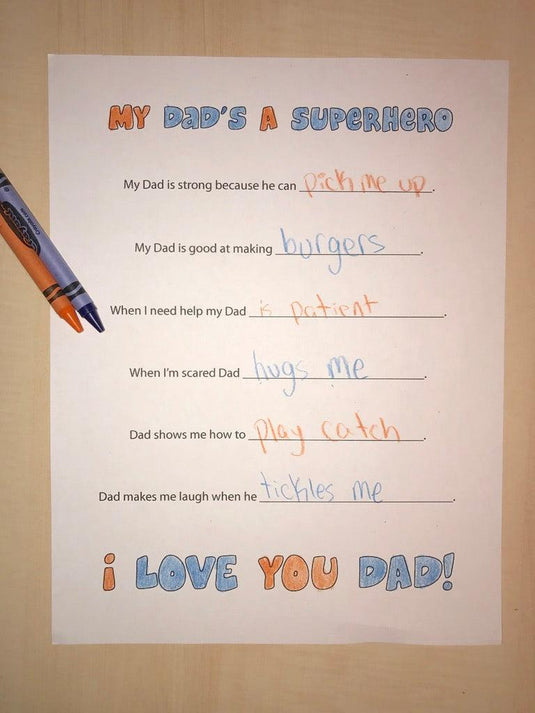 MY DaD'S A SUPERHERO
My Dad is strong because he can pick me up.
My Dad is good at making burgers.
When I need help my Dad is patient.
When I'm scared Dad hugs me.
Dad shows me how to play catch.
Dad makes me laugh when he tickles me.
i LOVE YOU DAD!
Crayola